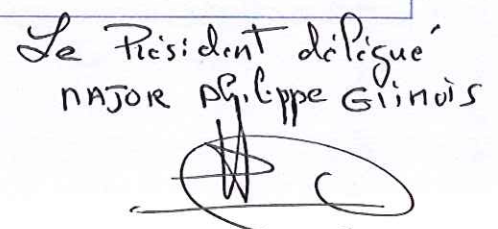 Le Président délégué
MAJOR Philippe